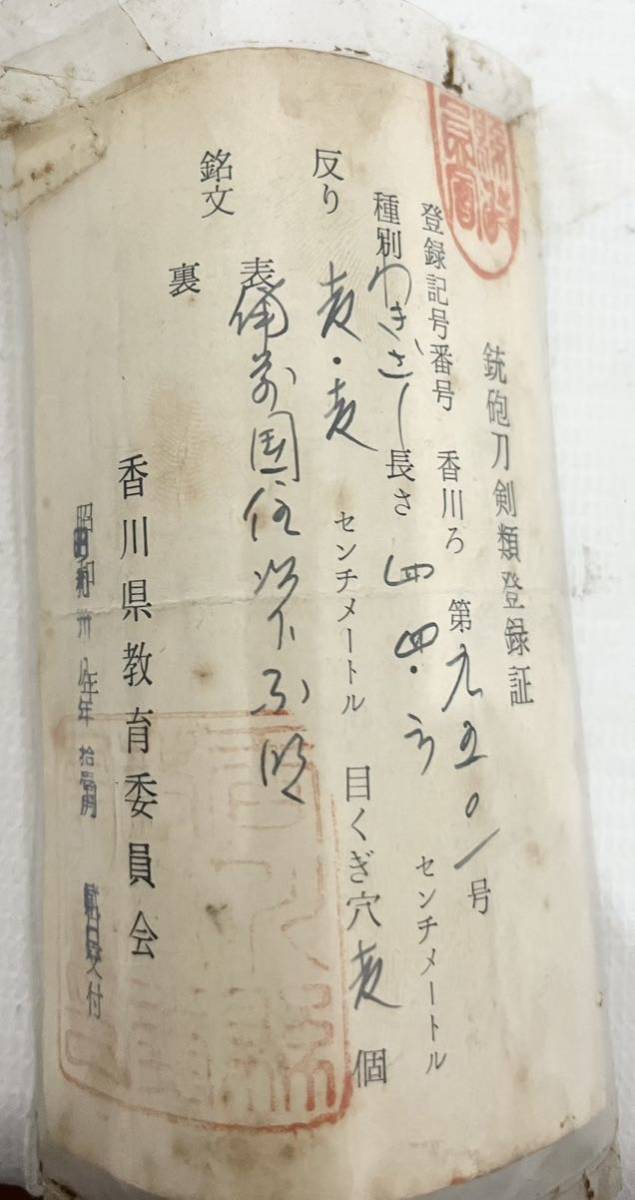 銃砲刀剣類登録証
登録記号番号 香川ろ 第九五〇一号
種別 わきざし 長さ 四四・ センチメートル
反り 壱・壱 センチメートル 目くぎ穴 壱 個
銘文 表 備前国住以下不明
裏
香川県教育委員会
昭和卅 年 拾壱月 日交付